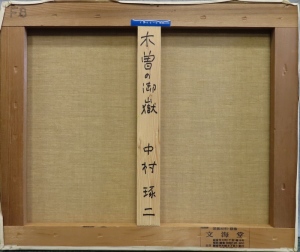 F8
木曽の御嶽 中村琢二
文房堂